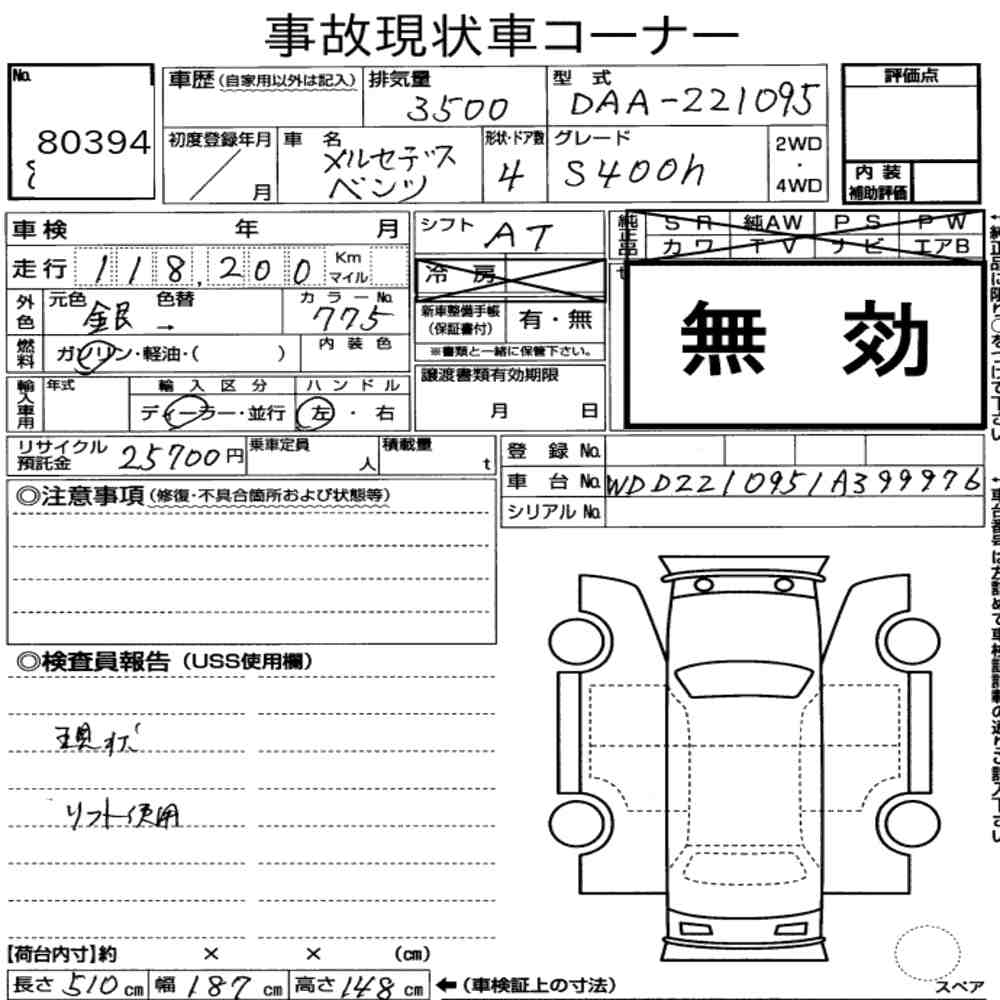 事故現状車コーナー
No.
80394
車歴 (自家用以外は記入)
排気量
3500
型 式
DAA-221095
評価点
初度登録年月
/ 月
車 名
メルセデス
ベンツ
形状・ドア数
4
グレード
S400h
2WD
・
4WD
内 装
補助評価
車検 年 月
シフト
AT
純正品
SR 純AW PS PW
カワ TV ナビ エアB
走行 118,200 Km マイル
冷房
無 効
外色
元色
銀
色替
→
カラーNo.
775
新車整備手帳
(保証書付)
有・無
※書類と一緒に保管下さい。
燃料
ガソリン・軽油・( )
内装色
輸入車用
年式
輸入区分
ディーラー・並行
ハンドル
左・右
譲渡書類有効期限
月 日
リサイクル
預託金
25700円
乗車定員
人
積載量
t
登 録 No.
車 台 No. WDD2210951A399976
シリアル No.
◎注意事項 (修復・不具合箇所および状態等)
◎検査員報告 (USS使用欄)
現状
リフト使用
【荷台内寸】約 × × (cm)
長さ 510 cm 幅 187 cm 高さ 148 cm
←(車検証上の寸法)
スペア